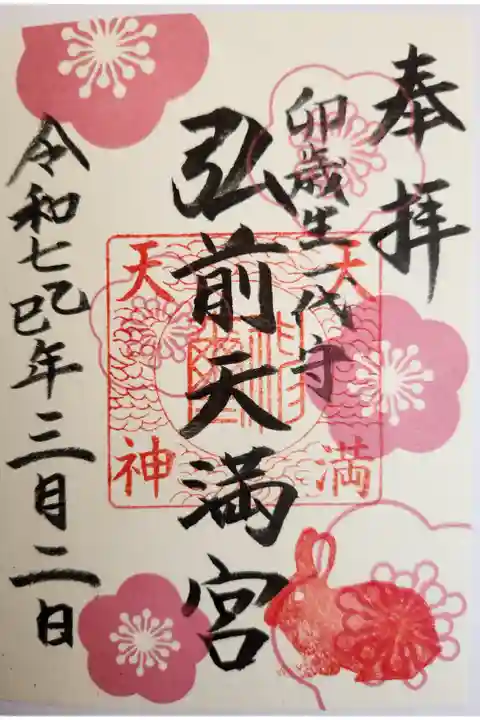 奉拝
卯歳生一代守
弘前天満宮
天満
天神
令和七乙巳年三月二日